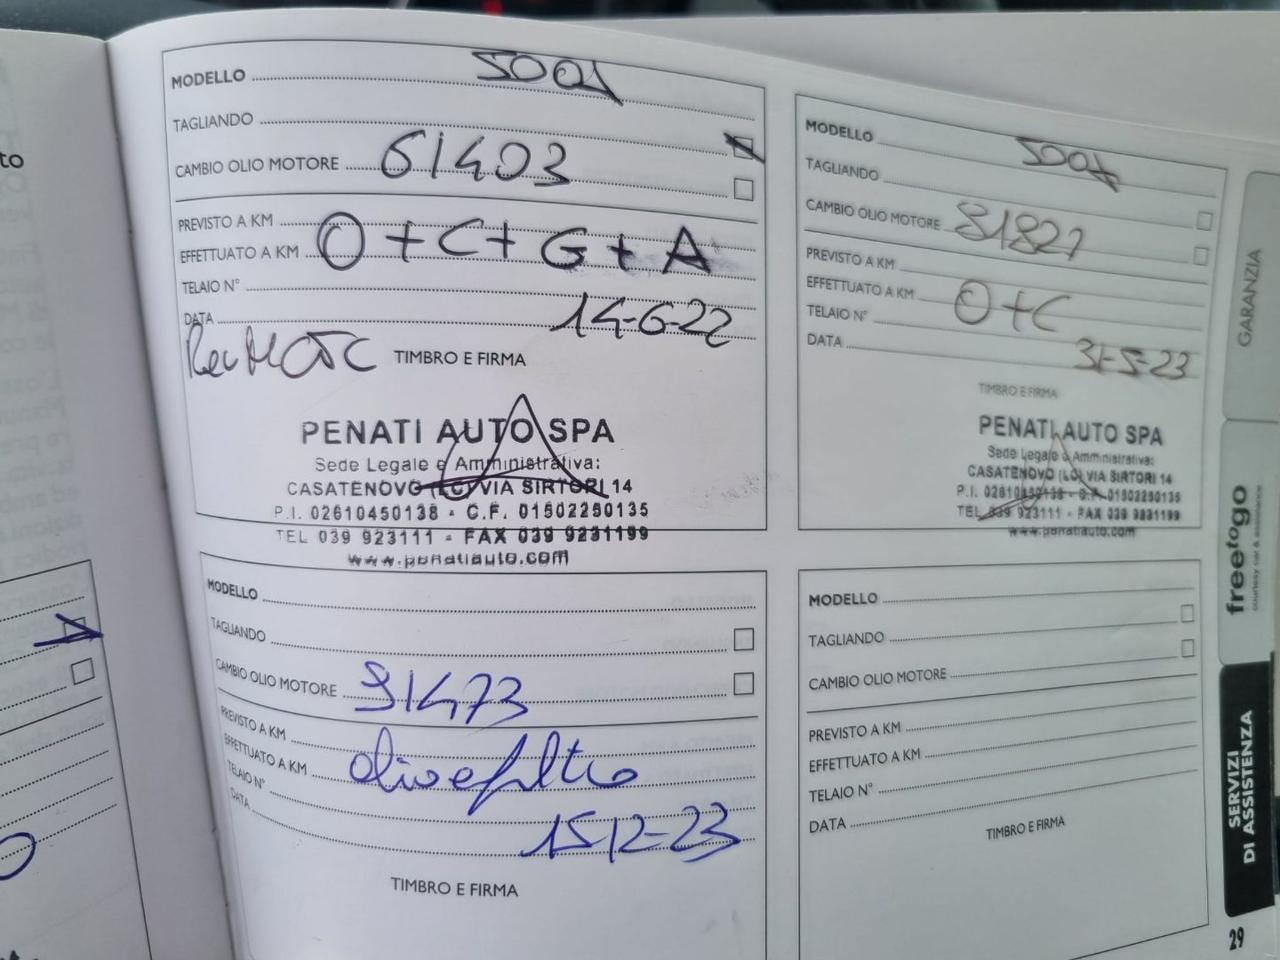 to
MODELLO 500X
TAGLIANDO
CAMBIO OLIO MOTORE 61403
PREVISTO A KM
EFFETTUATO A KM O+C+G+A
TELAIO N°
DATA 14-6-22
TIMBRO E FIRMA
PENATI AUTO SPA
Sede Legale e Amministrativa:
CASATENOVO (LC) VIA SIRTORI 14
P.I. 02610450138 - C.F. 01502250135
TEL 039 923111 - FAX 039 9231199
www.penatiauto.com
MODELLO 500X
TAGLIANDO
CAMBIO OLIO MOTORE 81821
PREVISTO A KM
EFFETTUATO A KM O+C
TELAIO N°
DATA 31-5-23
TIMBRO E FIRMA
PENATI AUTO SPA
Sede Legale e Amministrativa:
CASATENOVO (LC) VIA SIRTORI 14
P.I. 02610450138 - C.F. 01502250135
TEL 039 923111 - FAX 039 9231199
www.penatiauto.com
MODELLO
TAGLIANDO
CAMBIO OLIO MOTORE 91473
PREVISTO A KM
EFFETTUATO A KM olio e filtro
TELAIO N°
DATA 15-12-23
TIMBRO E FIRMA
MODELLO
TAGLIANDO
CAMBIO OLIO MOTORE
PREVISTO A KM
EFFETTUATO A KM
TELAIO N°
DATA
TIMBRO E FIRMA
GARANZIA
freetogo
courtesy car & assistance
SERVIZI
DI ASSISTENZA
29